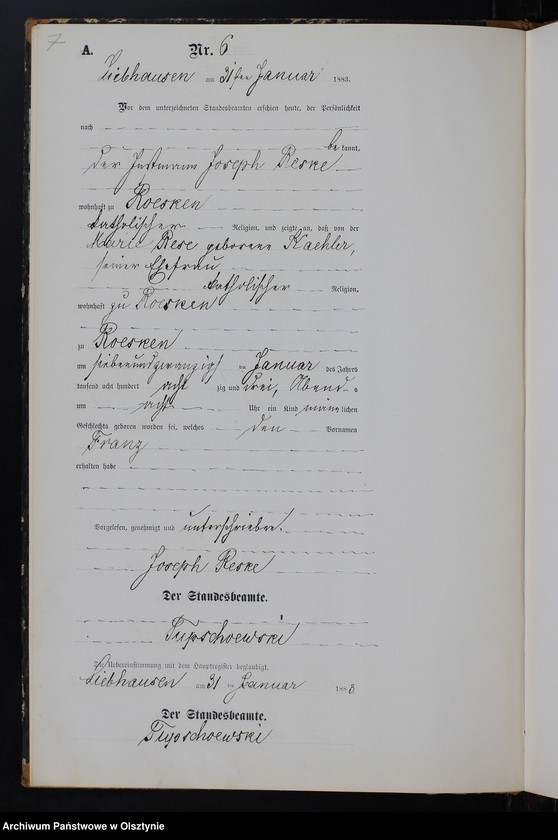 7
A. Nr. 6
Liebhausen am 31ten Januar 1883.
Vor dem unterzeichneten Standesbeamten erschien heute, der Persönlichkeit
nach
be kannt,
der Instmann Joseph Reske
wohnhaft zu Roesken
katholischer Religion, und zeigte an, daß von der
Marie Rese geborene Kaehler,
seiner Ehefrau
katholischer Religion,
wohnhaft zu Roesken
zu Roesken
am siebenundzwanzigst en Januar des Jahres
tausend acht hundert acht zig und drei, Abend s
um acht Uhr ein Kind männ lichen
Geschlechts geboren worden sei, welches den Vornamen
Franz
erhalten habe
Vorgelesen, genehmigt und unterschrieben.
Joseph Reske
Der Standesbeamte.
Die Uebereinstimmung mit dem Hauptregister beglaubigt.
Liebhausen am 31 ten Januar 1883
Der Standesbeamte.
Archiwum Państwowe w Olsztynie